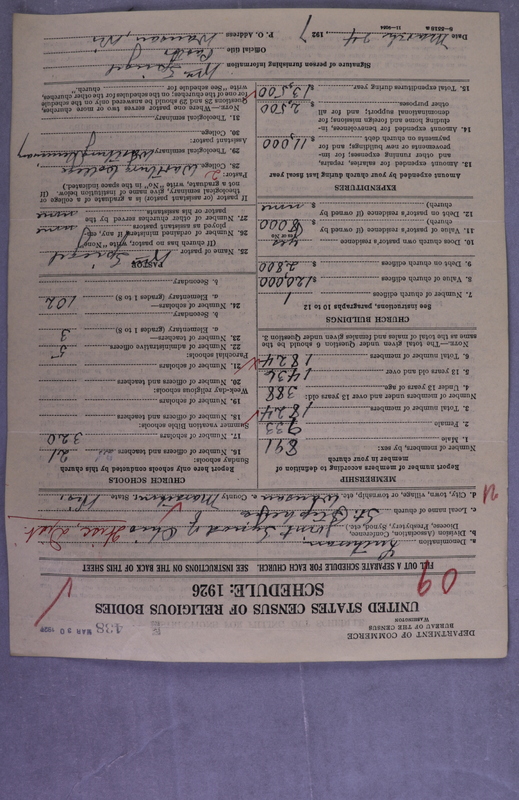 DEPARTMENT OF COMMERCE
BUREAU OF THE CENSUS
WASHINGTON
438
MAR 30 1927
UNITED STATES CENSUS OF RELIGIOUS BODIES
SCHEDULE: 1926
09
FILL OUT A SEPARATE SCHEDULE FOR EACH CHURCH. SEE INSTRUCTIONS ON THE BACK OF THIS SHEET
a. Denomination Lutheran,
b. Division (Association, Conference, Diocese, Presbytery, Synod, etc.) Joint Synod of Ohio Wisc. Dist.
c. Local name of church St. Stephens
d. City, town, village, or township, etc. Wausau, County Marathon, State Wis.
MEMBERSHIP
Report number of members according to definition of member in your church
Number of members, by sex:
1. Male 891
2. Female 933
3. Total number of members 1824
Number of members under and over 13 years old:
4. Under 13 years of age 388
5. 13 years old and over 1436
6. Total number of members 1824
NOTE.—The total given under Question 6 should be the same as the total of males and females given under Question 3.
CHURCH BUILDINGS
See instructions, paragraphs 10 to 12
7. Number of church edifices 1
8. Value of church edifices $120,000
9. Debt on church edifices $ 2,800
10. Does church own pastor's residence yes
Yes or No
11. Value of pastor's residence (if owned by church) $ 8,000
12. Debt on pastor's residence (if owned by church) $ none
EXPENDITURES
Amount expended by your church during last fiscal year
13. Amount expended for salaries, repairs, and other running expenses; for improvements or new buildings; and for payments on church debt $ 11,000
14. Amount expended for benevolences, including home and foreign missions; for denominational support; and for all other purposes $ 2,500
15. Total expenditures during year $ 13,500
CHURCH SCHOOLS
Report here only schools conducted by this church
Sunday schools:
16. Number of officers and teachers 21
17. Number of scholars 320
Summer vacation Bible schools:
18. Number of officers and teachers
19. Number of scholars
Week-day religious schools:
20. Number of officers and teachers
21. Number of scholars
Parochial schools:
22. Number of administrative officers 5
23. Number of teachers—
a. Elementary (grades 1 to 8) 3
b. Secondary
24. Number of scholars—
a. Elementary (grades 1 to 8) 102
b. Secondary
PASTOR
25. Name of pastor Wm. Spiegel
(If church has no pastor, write "None")
26. Number of ordained ministers, if any, employed as assistant pastors none
27. Number of other churches served by the pastor or his assistants none
If pastor (or assistant pastor) is a graduate of a college or theological seminary, give name of institution below. (If not a graduate, write "No" in the space indicated.)
Pastor:
28. College Wartburg College
29. Theological seminary
Assistant pastor:
30. College
31. Theological seminary
NOTE.—Where one pastor serves two or more churches, Questions 28 and 29 should be answered only on the schedule for one of the churches; on the schedules for the other churches, write "See schedule for church."
Signature of person furnishing information Wm. Spiegel
Official title Pastor
P. O. Address Wausau, Wis
Date March 24 1927
11—8084